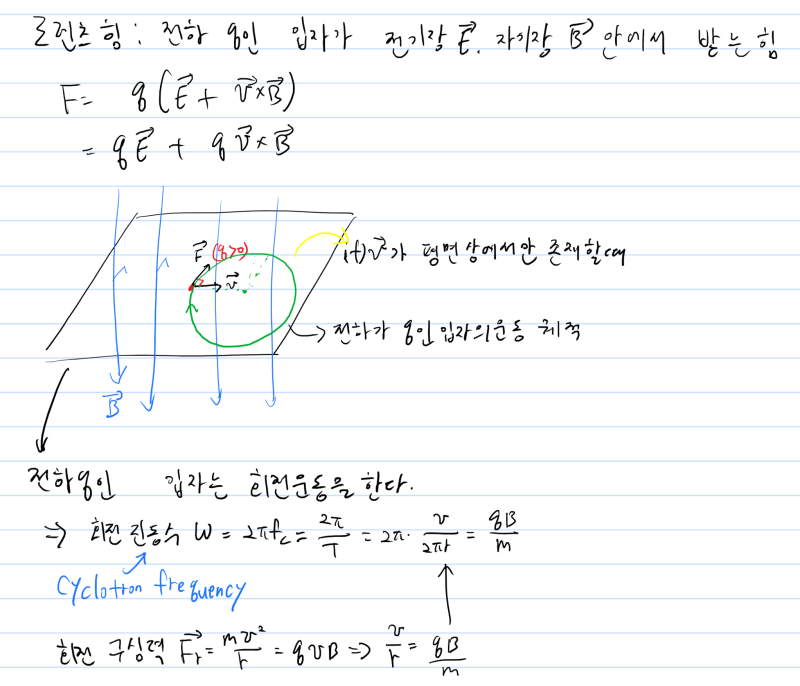 로렌츠 힘 : 전하 q인 입자가 전기장 E⃗, 자기장 B⃗ 안에서 받는 힘
F = q(E⃗ + v⃗×B⃗)
= qE⃗ + qv⃗×B⃗
F⃗ (q>0)
v⃗
if) v⃗가 평면상에서만 존재할때
→ 전하가 q인 입자의 운동 궤적
B⃗
전하 q인 입자는 회전운동을 한다.
⇒ 회전 진동수 W = 2πfc = 2π/T = 2π · v/2πr = qB/m
Cyclotron frequency
회전 구심력 F⃗r = mv²/r = qvB ⇒ v/r = qB/m